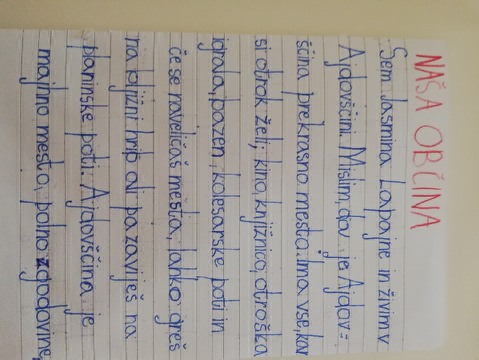 NAŠA OBČINA
Sem Jasmina Lapajne in živim v
Ajdovščini. Mislim, da je Ajdov=
ščina prekrasno mesto. Ima vse, kar
si otrok želi; kino, knjižnico, otroška
igrala, bazen, kolesarske poti in
če se naveličaš mesta, lahko greš
na bližnji hrib ali pa zaviješ na
planinske poti. Ajdovščina je
majhno mesto, polno zgodovine,